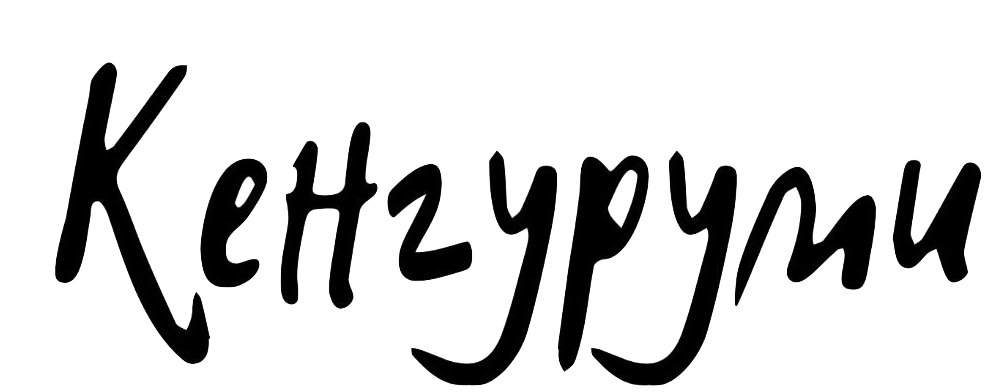 Кенгуруми